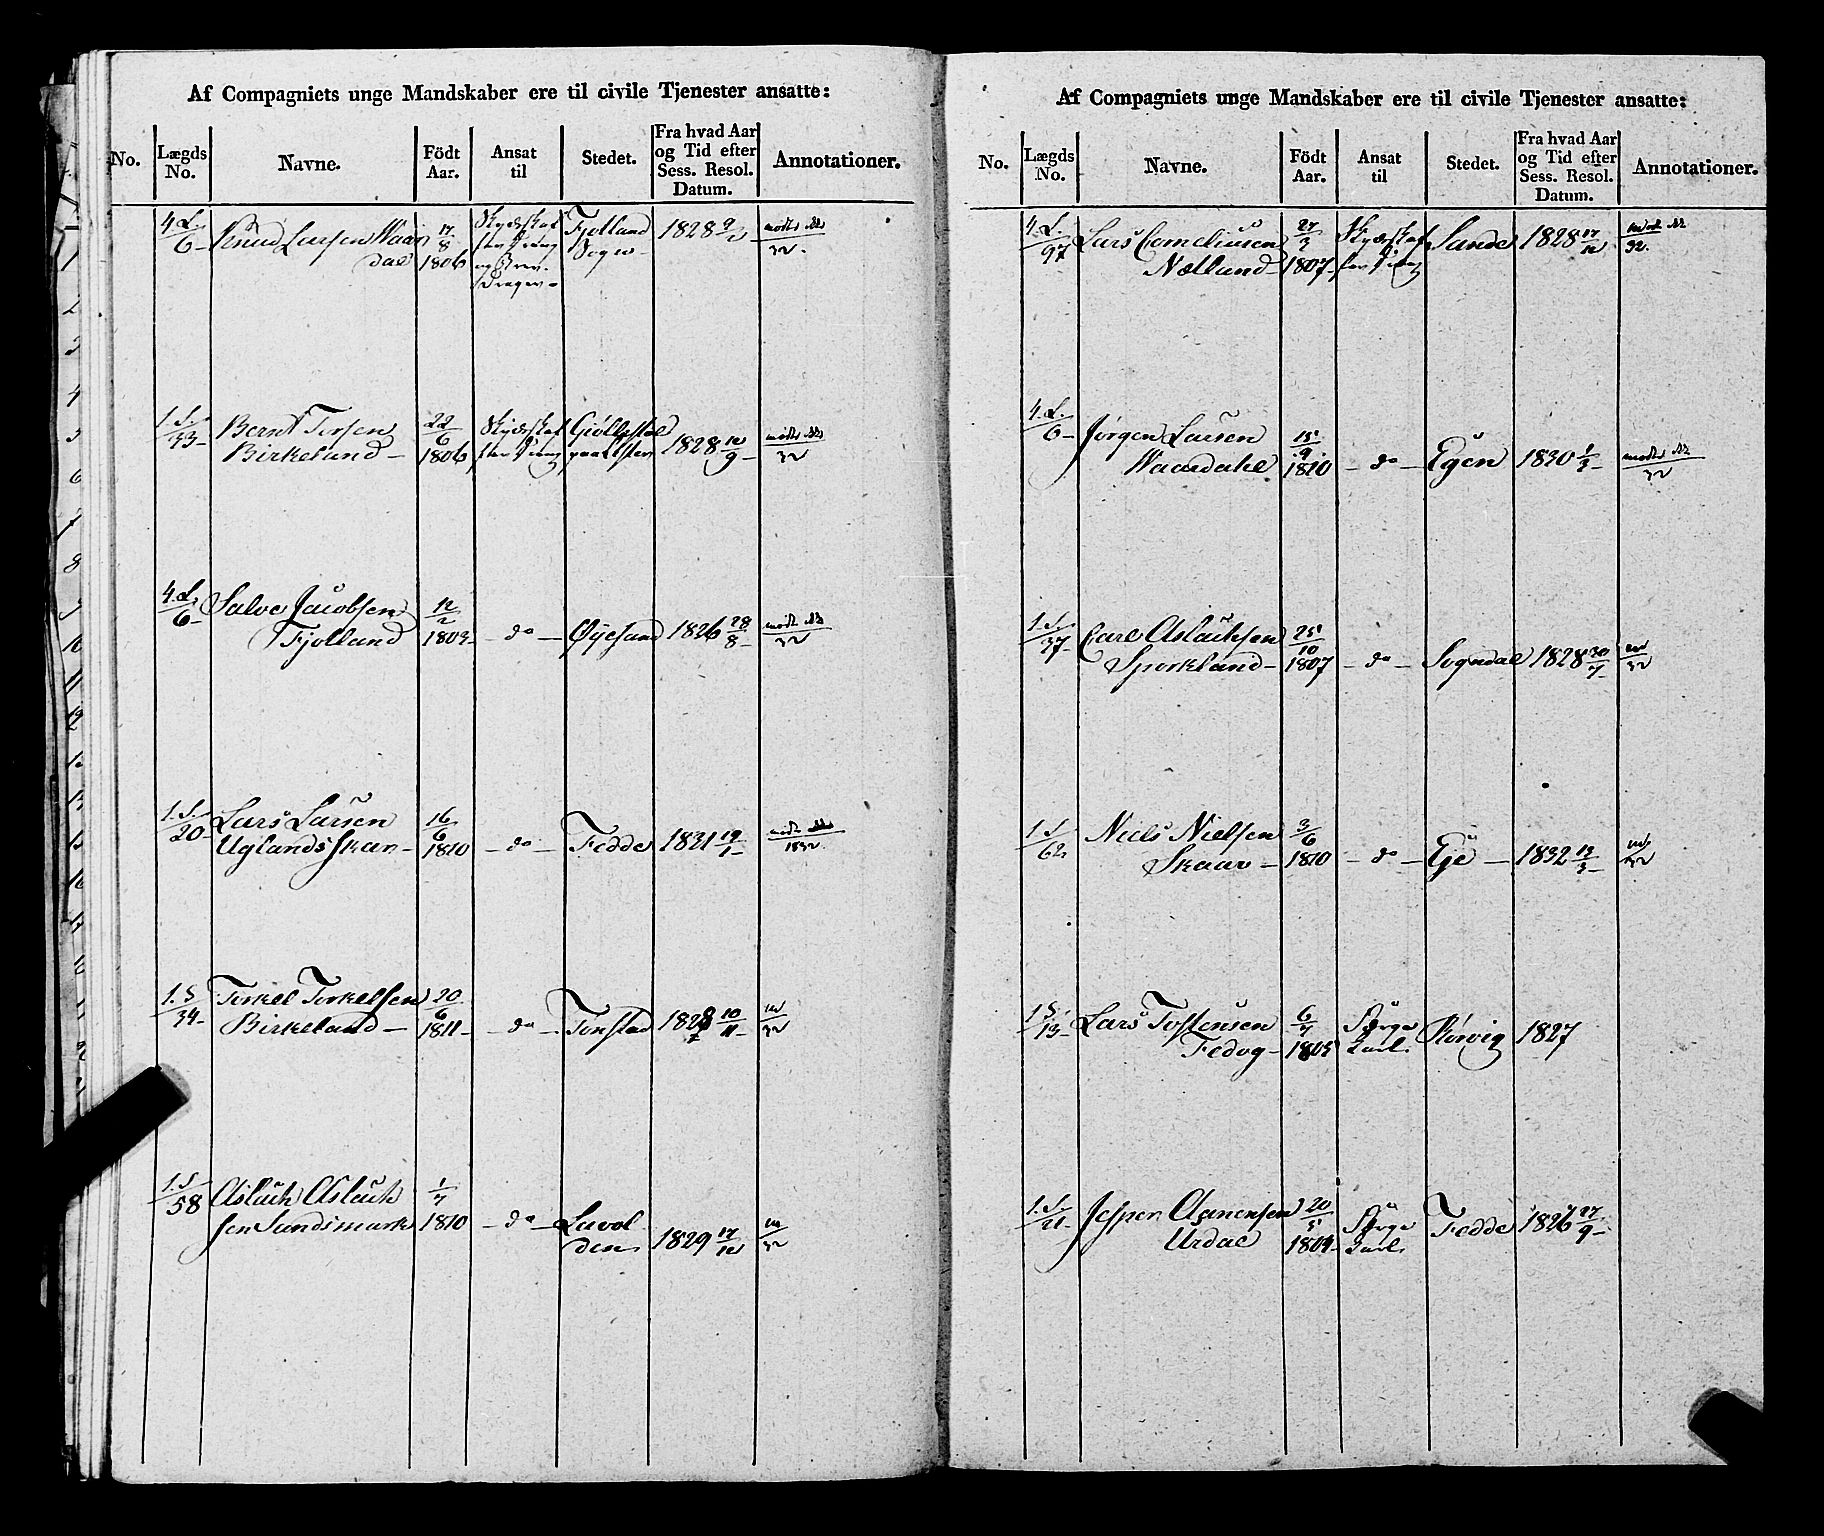 Af Compagniets unge Mandskaber ere til civile Tjenester ansatte:
No. Lægds No. Navne. Födt Aar. Ansat til Stedet. Fra hvad Aar og Tid efter Sess. Resol. Datum. Annotationer.
4. L. 6 Knud Larsen Waar 17/8 Skydsskaf Fjotland 1828 9/2 mødt
dal 1806 fer Dreng Sogn 32.
og Brev-
drager
1. S. 33 Bernt Torsen 22/6 Skydsskaf mødt
Birkeland 1806 fer Dreng 1828 12/9 32
4. L. 6 Salve Jacobsen 12/2 mødt
Fjotland 1803 do Øyesand 1826 28/8 32
1. S. 20 Lars Larsen 16/6 mødt
Uglands Skar 1810 do Fedde 1831 19/1 1832
1. S 34 Torkel Torkelsen 20/6 m
Birkeland 1811 do Tonstad 10/11 32
1. S 58 Aslack Aslack 1/7
sen Sandsmark 1810 do Lavol m
den 1829 17/12 32
Af Compagniets unge Mandskaber ere til civile Tjenester ansatte:
No. Lægds No. Navne. Födt Aar. Ansat til Stedet. Fra hvad Aar og Tid efter Sess. Resol. Datum. Annotationer.
4. L. 97 Lars Corneliusen 27/3 Skydsskaf Sande 1828 17/12 mødt
Nætland 1807 fer Dreng 32.
4. L. 6 Jørgen Larsen 15/9
Waardahl 1810 do Egen 1830 1/3 mødt 32
1. S. 37 Carl Aslacksen 25/10 m
Sporkland 1807 do Sogndal 1828 30/7 32
1. S 62 Niels Nielsen 3/6
Skaar 1810 do Eje 1832 13/3 32
1 S. 13 Lars Tostensen 6/7 Færge Rørvig 1827
Fedog 1805 Karl
1. S. 21 Jesper Aanensen 20/5 Færge Fedde 1826 27/9
Urdal 1804 Karl